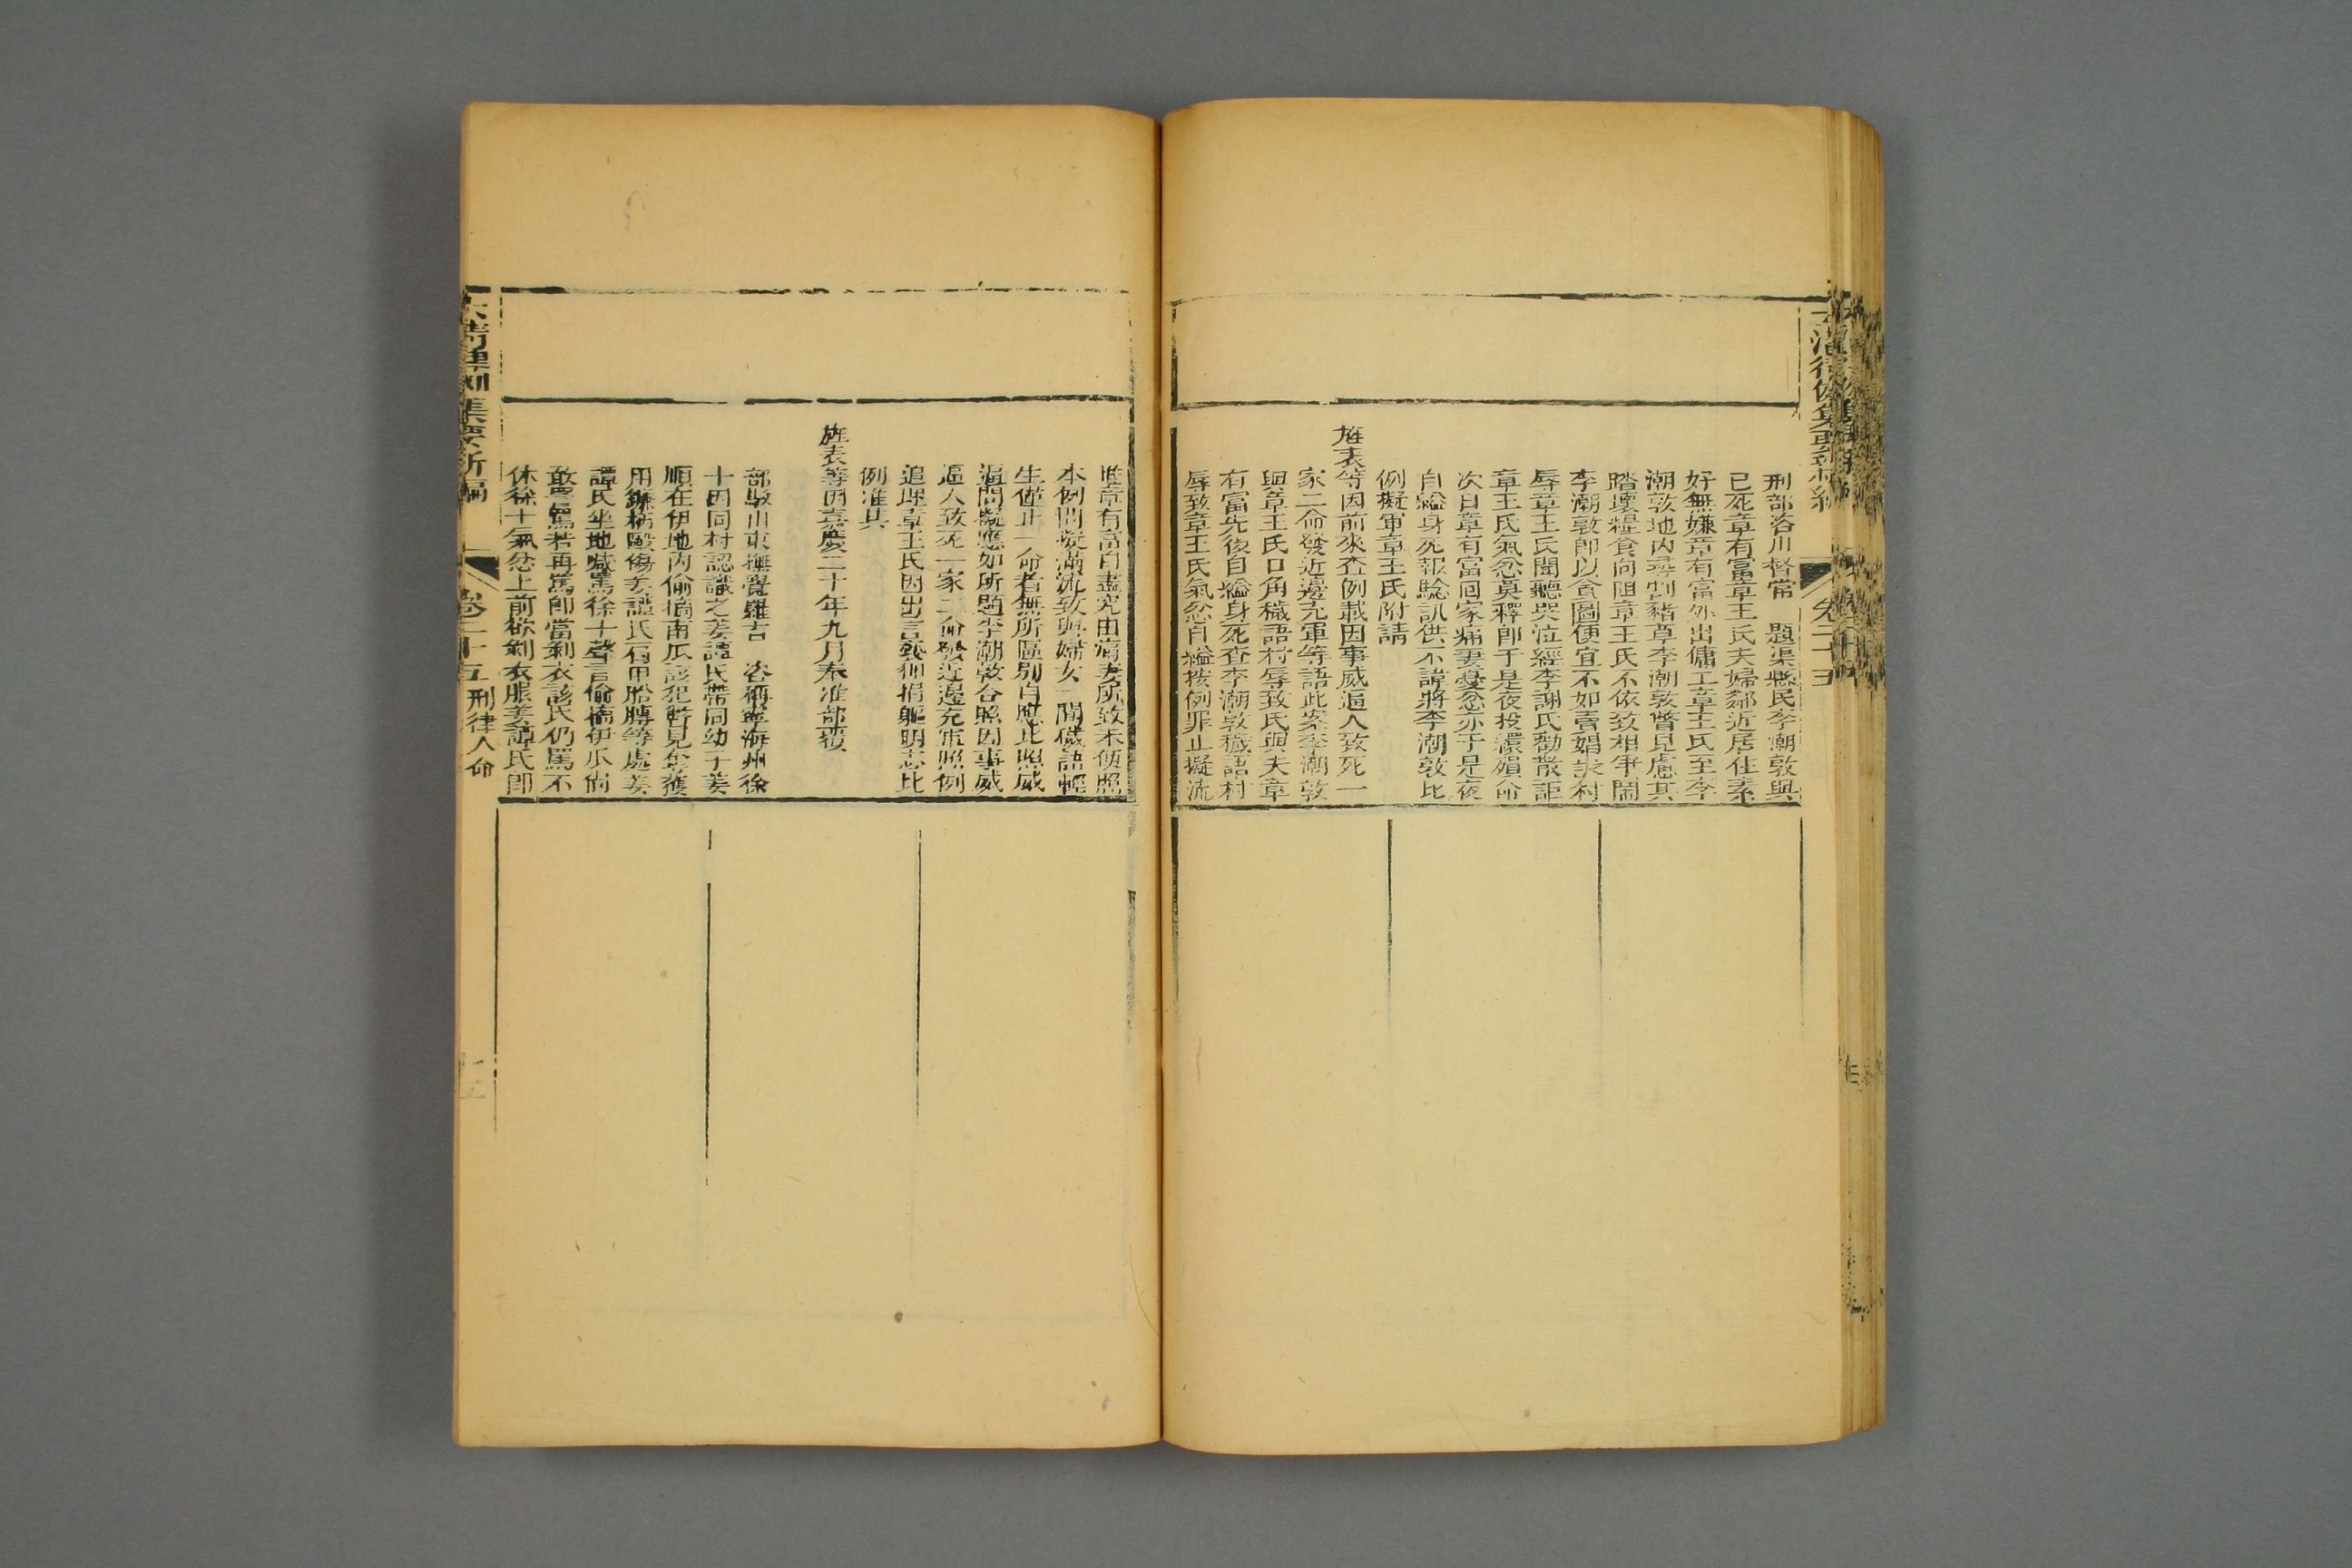 刑部咨川督常　題渠縣民李潮敦與
已死章有富章王氏夫婦鄰近居住素
好無嫌章有富外出傭工章王氏至李
潮敦地內尋割豬草李潮敦瞥見慮其
踏壞糧食向阻章王氏不依致相爭鬧
李潮敦即以貪圖便宜不如賣娼之言村
辱章王氏聞聽哭泣經李謝氏勸散詎
章王氏氣忿莫釋即于是夜投繯殞命
次日章有富囘家痛妻憂忿亦于是夜
自縊身死報驗訊供不諱將李潮敦比
例擬軍章王氏附請
旌表等因前來查例載因事威逼人致死一
家二命發近邊充軍等語此案李潮敦
與章王氏口角穢語村辱致氏與夫章
有富先後自縊身死查李潮敦穢語村
辱致章王氏氣忿自縊按例罪止擬流
惟章有富自盡究由痛妻所致未便照
本例問擬滿流致與婦女一聞穢語輕
生僅止一命者無所區別自應比照威
逼問擬應如所題李潮敦合照因事威
逼人致死一家二命發近邊充軍照例
追埋章王氏因出言褻狎捐軀明志比
例准其
旌表等因嘉慶二十年九月奉准部覆
部駁山東撫覺羅吉　咨稱寧海州徐
十因同村認識之姜譚氏帶同幼子姜
順在伊地內偷摘南瓜該犯瞥見奔獲
用鐮柄毆傷姜譚氏右甲胳膊等處姜
譚氏坐地喊罵徐十聲言偷摘伊瓜尙
敢罵若再罵即當剝衣該氏仍罵不
休徐十氣忿上前欲剝衣服姜譚氏即
大清律例集要新編　卷二十五刑律人命